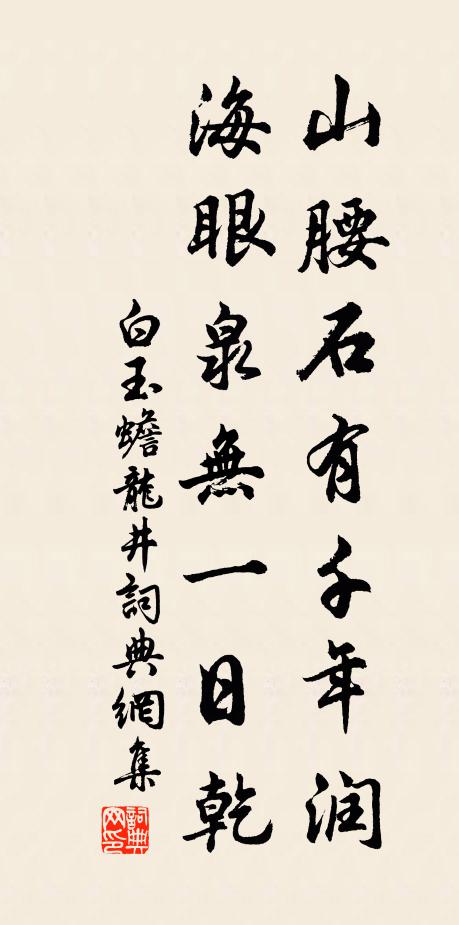 山腰石有千年润
海眼泉無一日乾
白玉蟾龍井詞典網集
詞典
网印